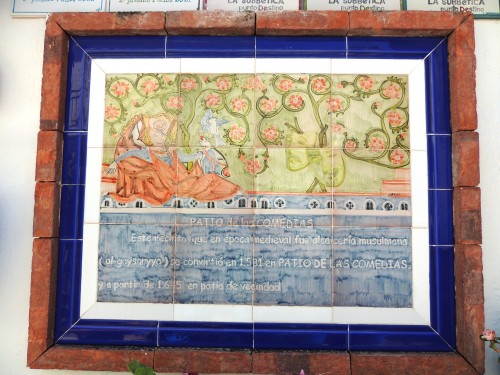 LA SUBBETICA
punto Destino
LA SUBBETICA
punto Destino
LA SUBBETICA
punto Destino
PATIO de las COMEDIAS
Este recinto que en época medieval fue alcaicería musulmana
( al-qaysariyya ) se convirtió en 1581 en PATIO DE LAS COMEDIAS,
y a partir de en patio de vecindad